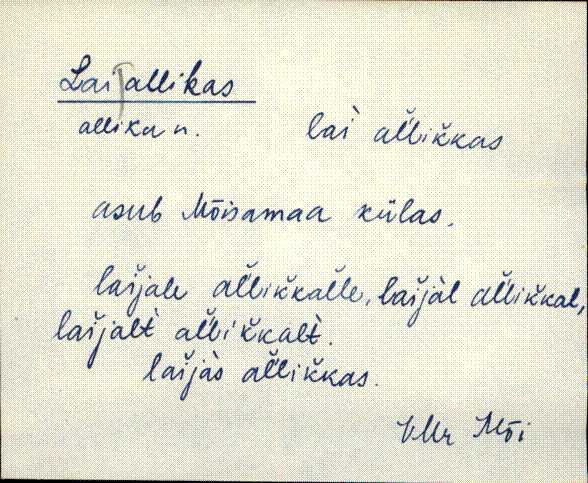 Lai allikas
allika n. lai al̆lik̆kas
asub Mõisamaa külas.
laĭjale al̆lik̆kal̆le, laĭjàl al̆lik̆kal,
laĭjalt̀ al̆lik̆kalt̀.
laĭjàs al̆lik̆kas.
VMr Mõi